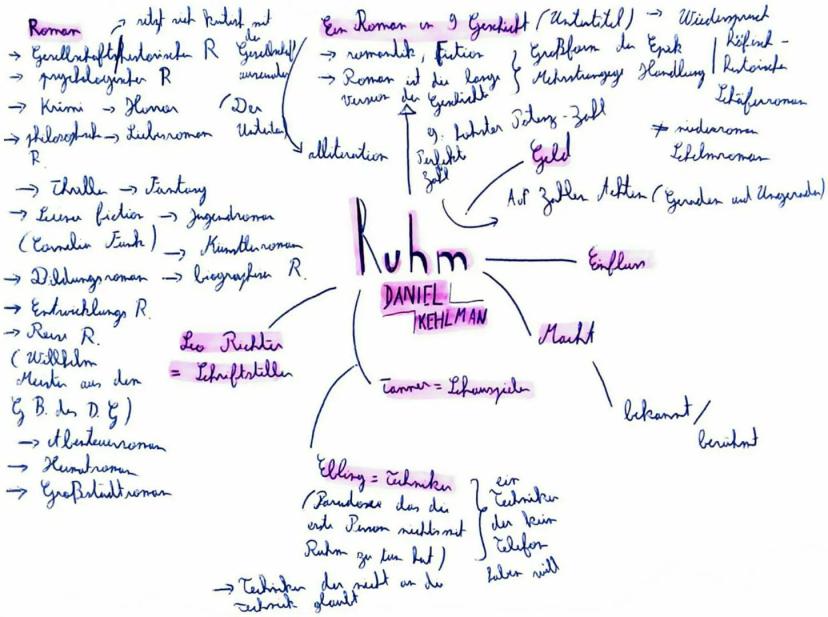 Roman
→ setzt sich kritisch mit
der
Gesellschaft
auseinander
→ Gesellschafts/historischer R
→ psychologischer R
→ Krimi → Horror
(Der
Untertitel
→ philosophisch → Liebesroman
R.
→ Thriller → Fantasy
→ Science fiction → Jugendroman
(Cornelia Funk) → Künstlerroman
→ Bildungsroman → biographischer R.
→ Entwicklungs R.
→ Reise R.
(Willhelm
Meister aus dem
G B. des D. G)
→ Abenteuerroman
→ Heimatroman
→ Großstadtroman
Ein Roman in 9 Geschicht (Untertitel) → Wiederspruch
→ romantik, fiction
→ Roman ist die lange
version der Geschicht
Großform der Epik
Mehrsträngige Handlung
Höfisch-
historische
Schäferroman
≠ niederroman
Schelmroman
→ alliteration
9. höhster Potenz-Zahl
Perfekt
Zahl
Geld
Auf Zahlen Achten (Geraden und Ungeraden)
Ruhm
DANIEL
KEHLMAN
Einfluss
Macht
bekannt/
berühmt
Leo Richter
= Schriftsteller
Tanner = Schauspieler
Ebling = Techniker
(Paradoxe das die
erste Person nichts mit
Ruhm zu tun hat)
ein
Techniker
der kein
Telefon
haben will
→ Techniker der nicht an die
Technik glaubt